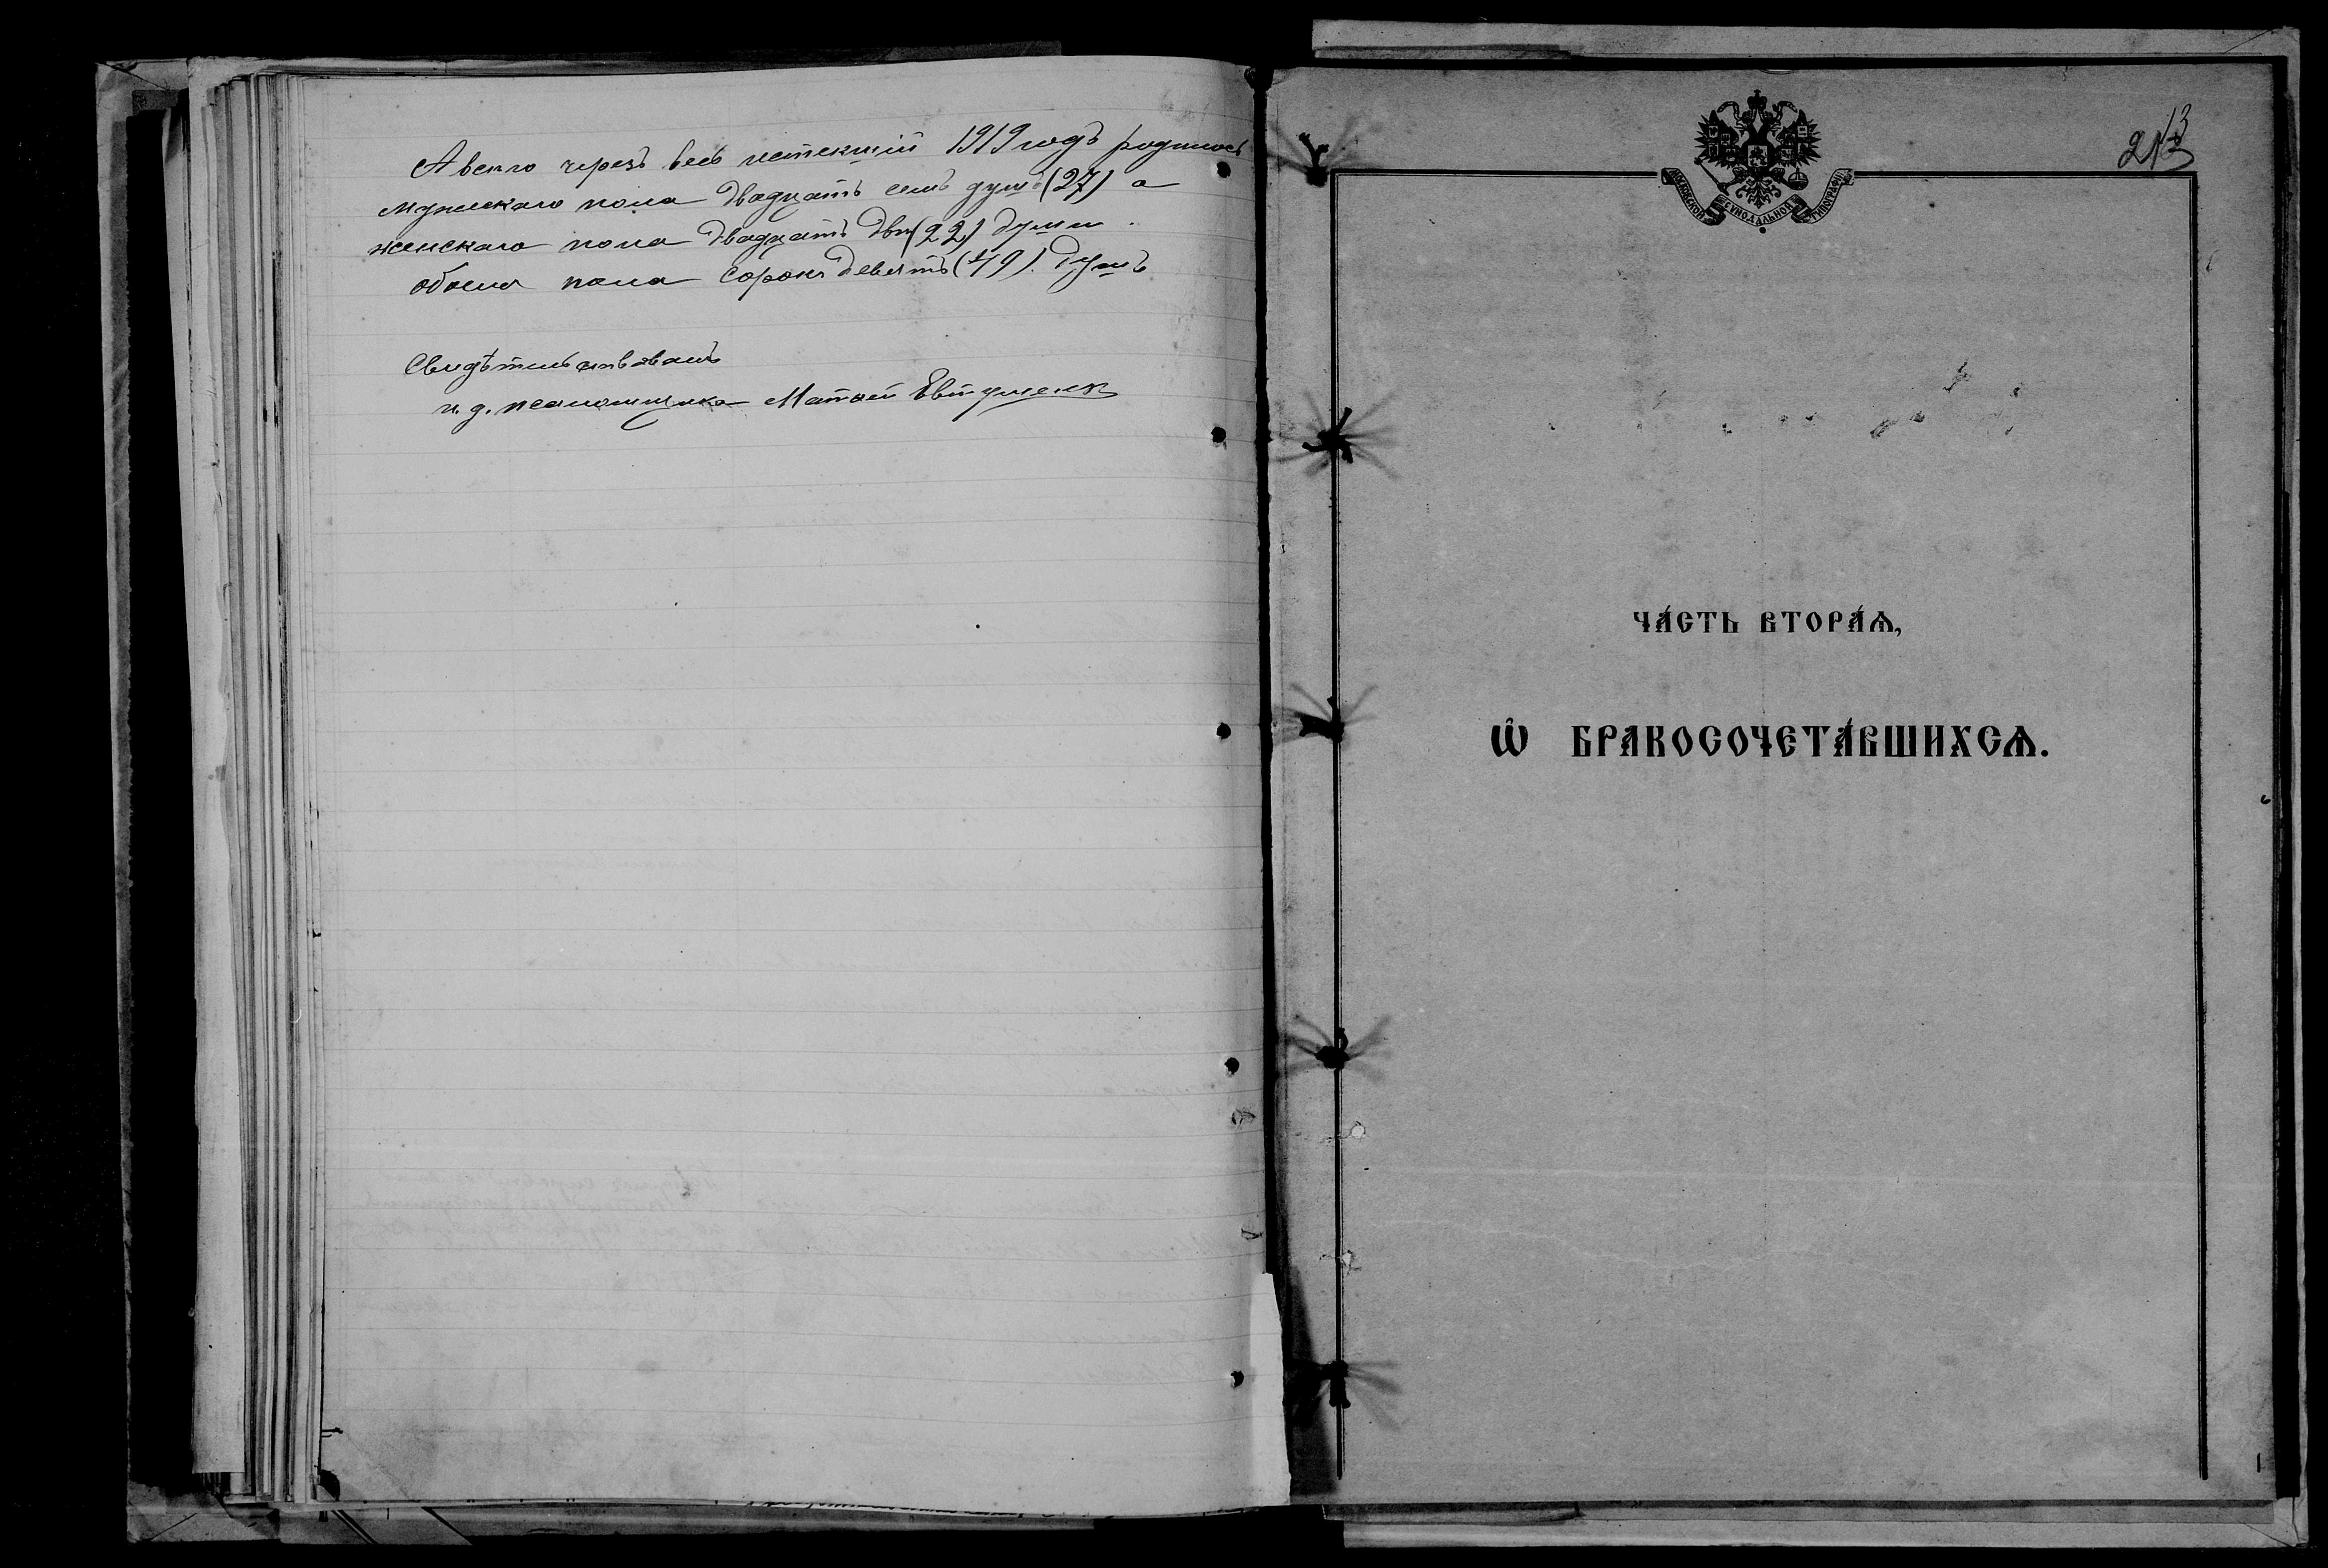 А всего черезъ весь истекшій 1919 годъ родилось
мужескаго пола двадцать семь душъ (27) а
женскаго пола двадцать двѣ (22) души.
обоего пола сорокъ девять (49). душъ
Свидѣтельствовалъ
и. д. псаломщика Матѳей
213
МОСКОВСКОЙ СѴНОДАЛЬНОЙ ТИПОГРАФІИ
ЧА́СТЬ ВТОРА́Ѧ,
Ѽ БРАКОСОЧЕТА́ВШИХСѦ.